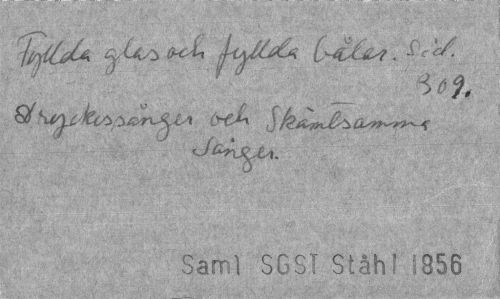 Fyllda glas och fyllda bålar. Sid.
309.
Dryckessånger och Skämtsamma
Sånger.
Saml SGST Ståhl 1856